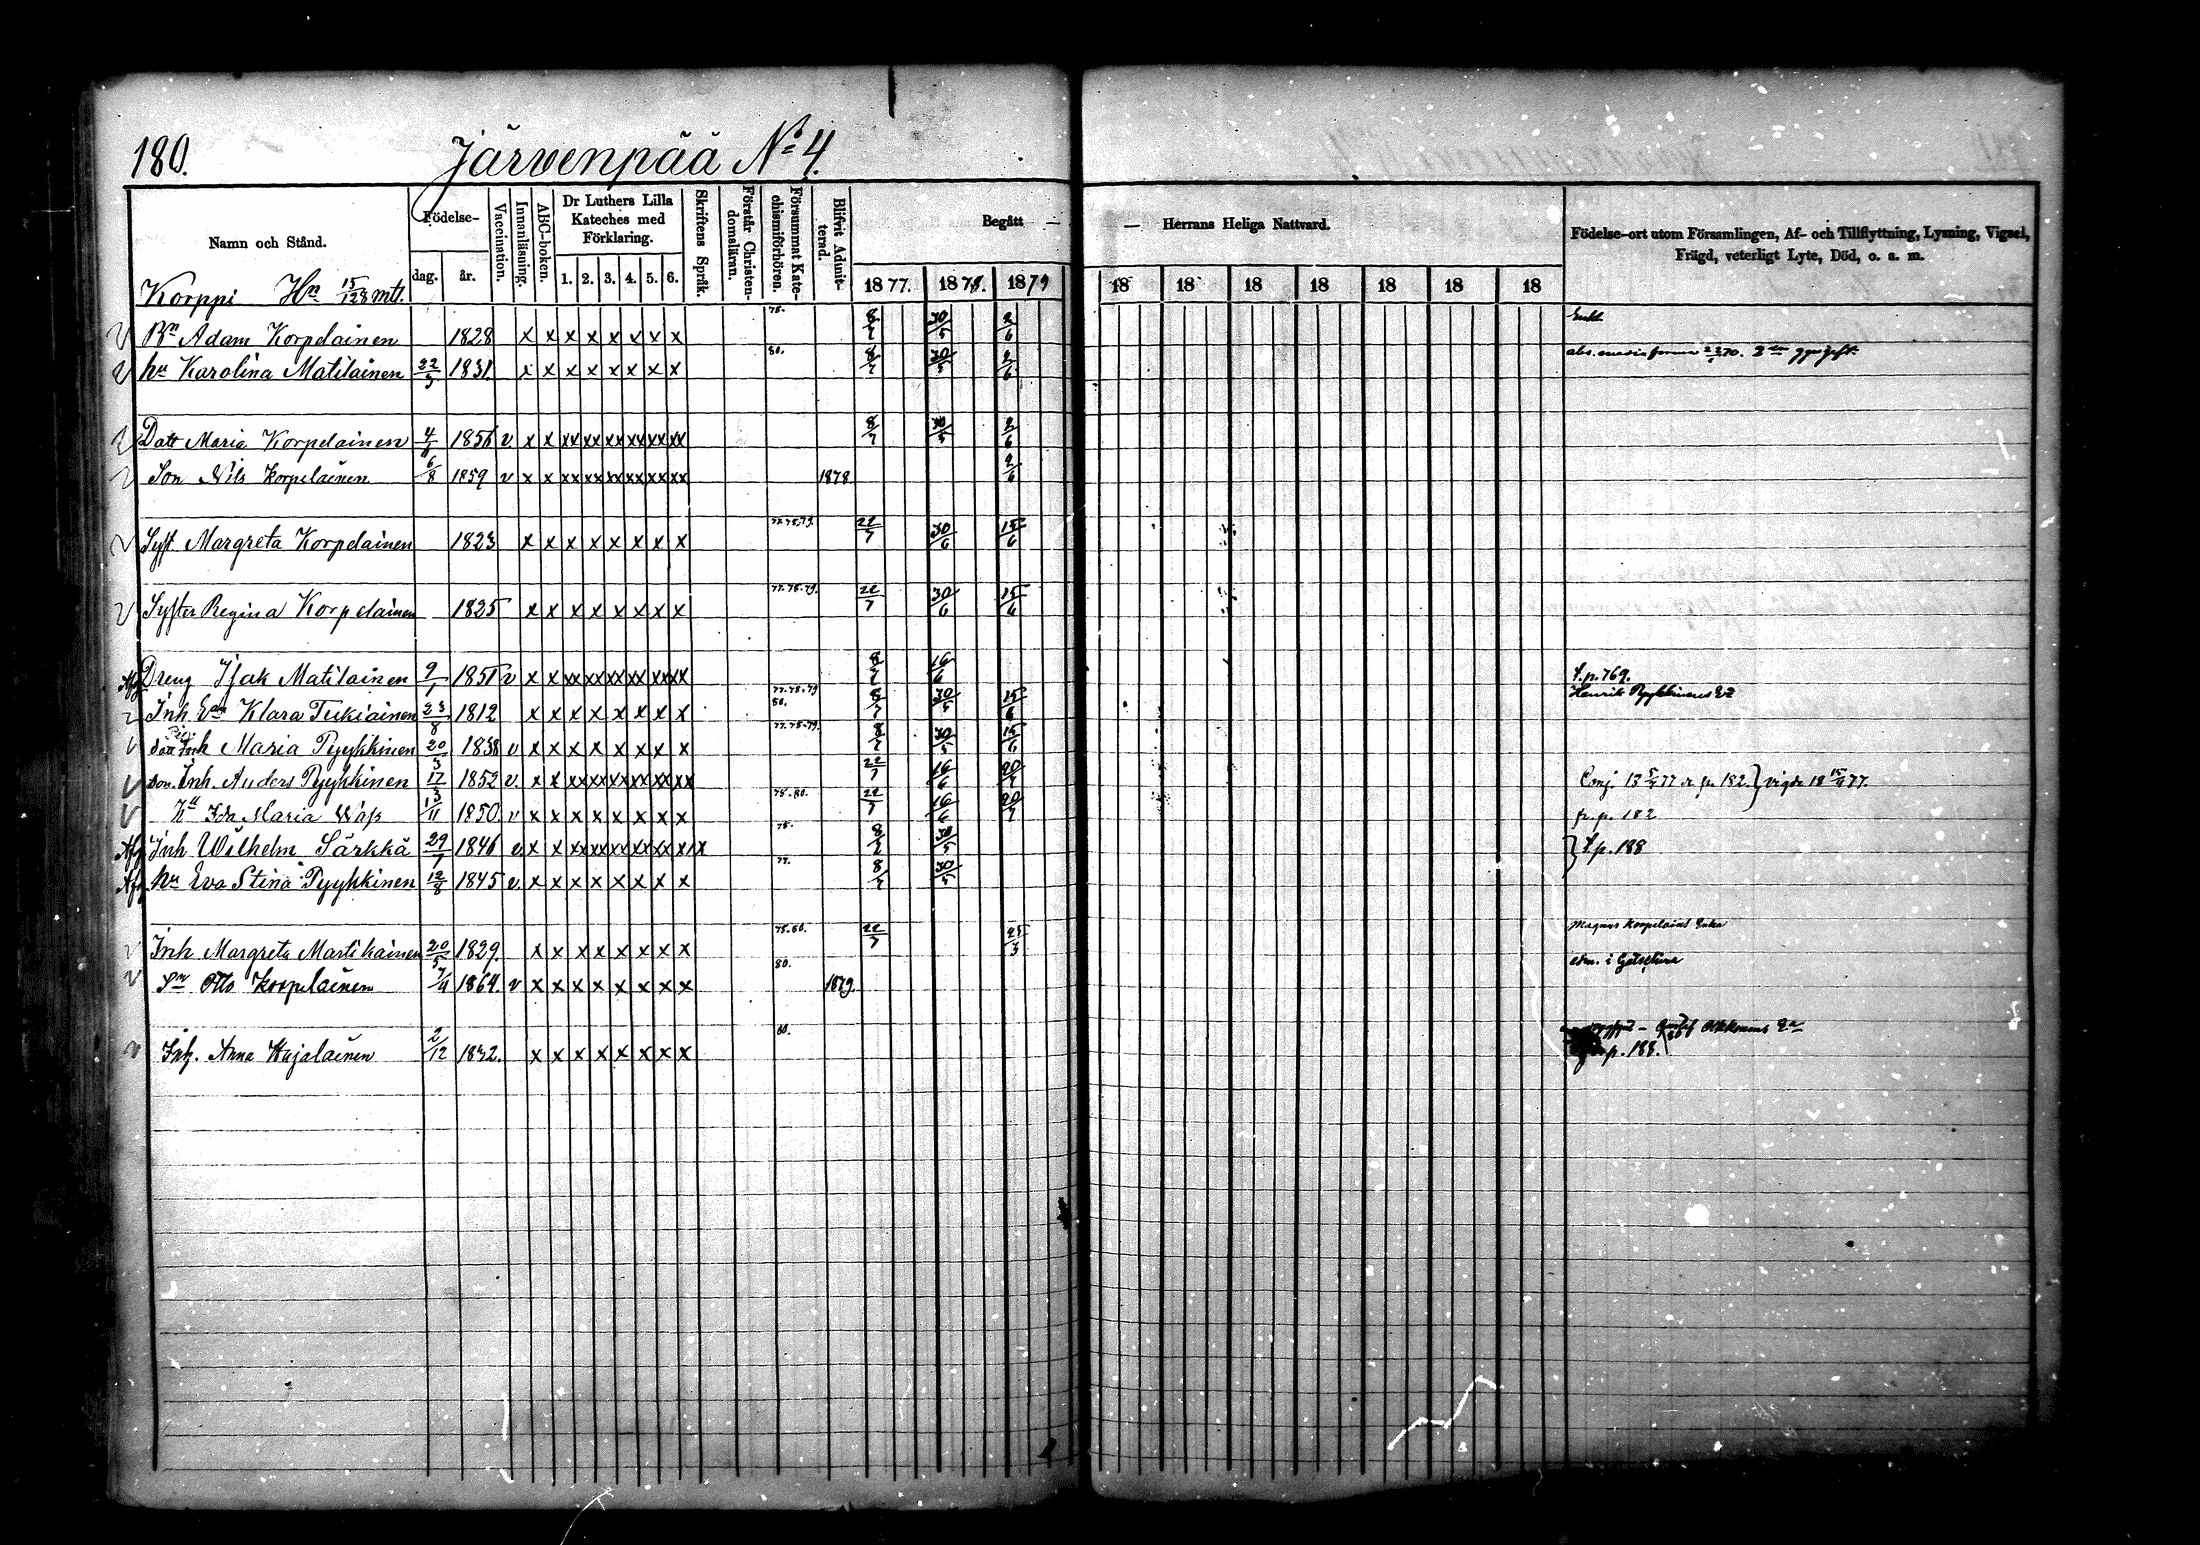 180.
Järvenpää No 4.
Namn och Stånd.
Födelse-
dag.
år.
Vaccination.
Innanläsning.
ABC-boken.
Dr Luthers Lilla
Kateches med
Förklaring.
1. 2. 3. 4. 5. 6.
Skriftens Språk.
Förstår Christen-
domsläran.
Försummat Kate-
chismiförhören.
Blifvit Admit-
terad.
Begått —
— Herrans Heliga Nattvard.
1877. 1878. 1879
18 18 18 18 18 18 18
Födelse-ort utom Församlingen, Af- och Tillflyttning, Lysning, Vigsel,
Frägd, veterligt Lyte, Död, o. s. m.
Korppi Hn 15/128 mtl.
v Bn Adam Korpelainen 1828 x x x x x x x x 78. 8/7 30/5 2/6
v hu Karolina Matilainen 22/3 1831 x x x x x x x x 80. 8/7 30/5 2/6
v Dott Maria Korpelainen 1856 v x x xx xx xx xx xx xx 8/7 30/5 2/6
v Son Nils Korpelainen 6/8 1859 v x x xx xx xx xx xx xx 1878 2/6
v Syst Margreta Korpelainen 1823 x x x x x x x x 77.78.79. 22/7 30/6 15/6
v Syster Regina Korpelainen 1825 x x x x x x x x 77.78.79. 22/7 30/6 15/6
Afg Dreng Isak Matilainen 9/1 1851 v x x xx xx xx xx xx xx 8/7 16/6 S.p. 769.
v Inh. Ean Klara Tukiainen 23/8 1812 x x x x x x x x 77.78.79 80. 8/7 30/5 15/6 Henrik Pyykkinens Ea
v dott Inh Maria Pyykkinen 20/3 1838 v x x x x x x x x 77.78.79. 8/7 30/5 15/6
v son. Inh. Anders Pyykkinen 17/3 1852 v. x x xx xx xx xx xx xx 22/7 16/6 20/7 fr. p. 182. } vigde 18 15/4 77.
v Hu Ida Maria Wäss 13/11 1850. v x x x x x x x x 78.80. 22/7 16/6 20/7 fr. p. 182
Afg Inh Wilhelm Särkkä 29/1 1846 v x x xx xx xx xx xx xx x 78. 8/7 30/5 } S.p. 188
Afg hu Eva Stina Pyykkinen 12/8 1845 v. x x x x x x x x 77. 8/7 30/5
v Inh Margreta Martikainen 20/5 1829. x x x x x x x x 78.80. 22/7 25/3 Magnus Korpelains Enka
v Sn Otto Korpelainen 7/4 1864. v x x x x x x x x 80. 1879.
v Inh. Anna Hujalainen 2/12 1832. x x x x x x x x 80. Gustaf Okkonens Ea
p. 188.